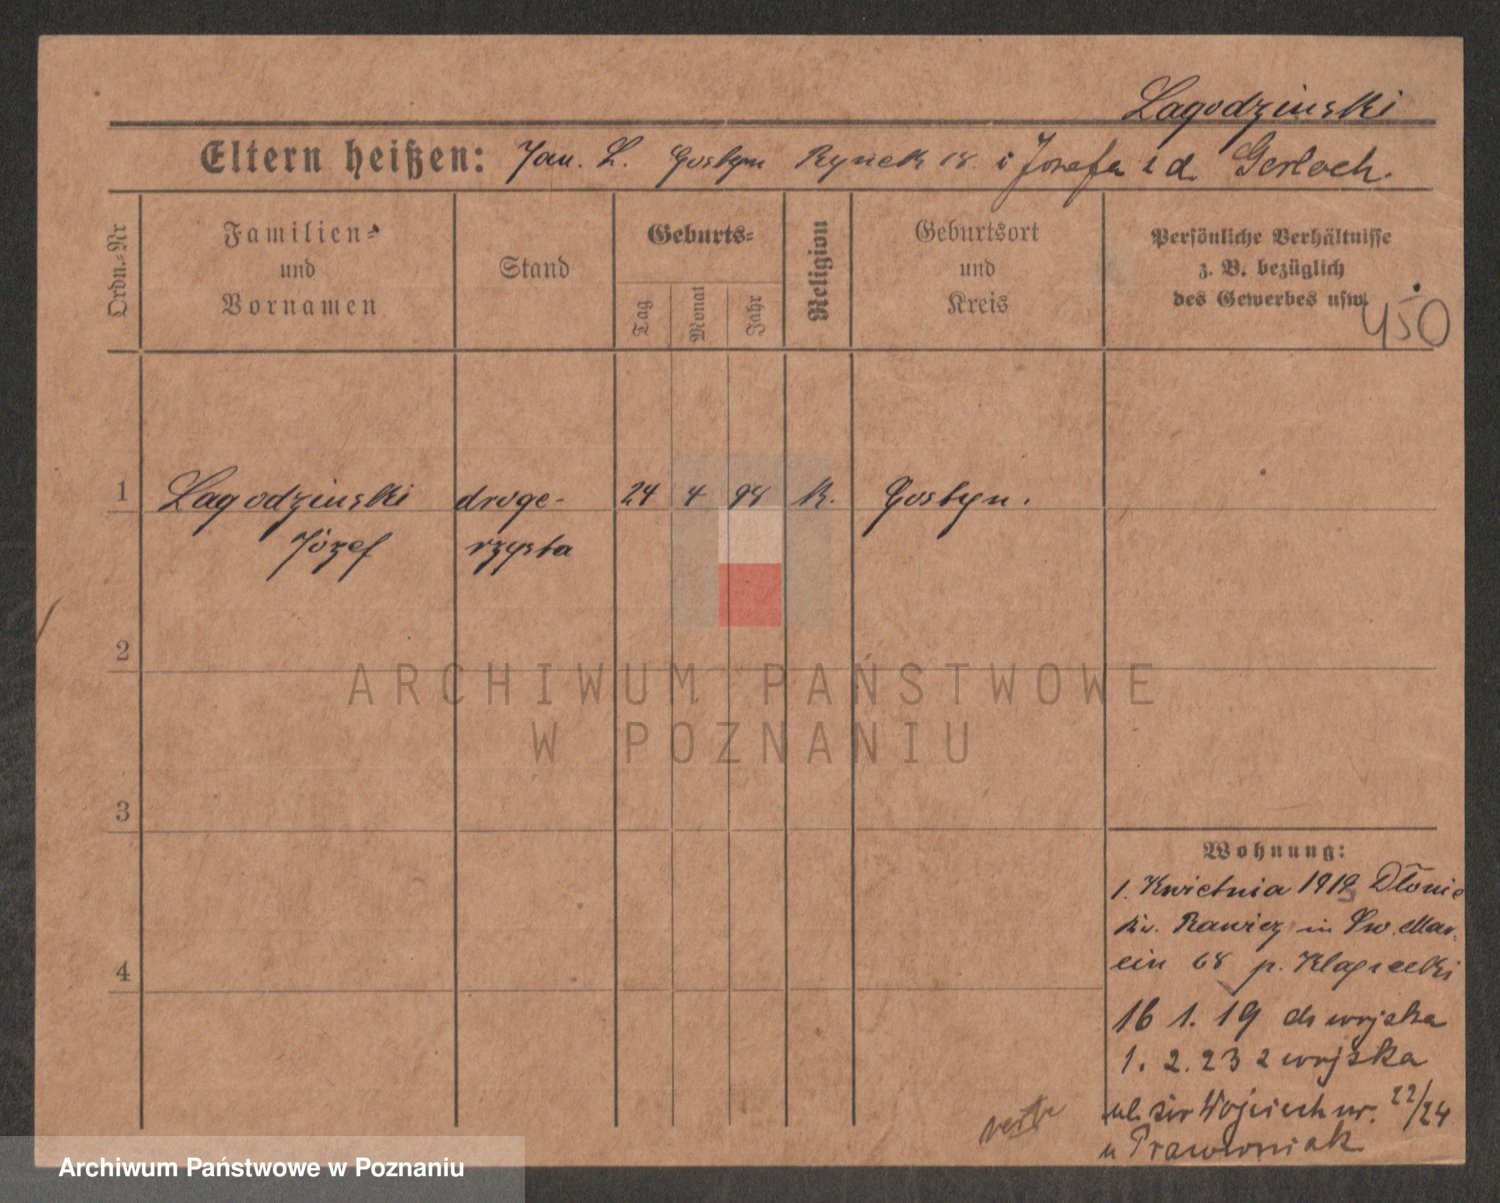 Lagodzinski
Eltern heißen: Jan. L. Gostyn Rynek 18. i Józefa z d. Gerlach.
Ordn.-Nr
Familien- und Vornamen
Stand
Geburts-
Tag
Monat
Jahr
Religion
Geburtsort und Kreis
Persönliche Verhältnisse
z. B. bezüglich
des Gewerbes usw.
450
1 Lagodzinski droge- 24 4 98 K. Gostyn.
Józef rzysta
2
ARCHIWUM PAŃSTWOWE
W POZNANIU
3
Wohnung:
1. Kwietnia 1919 Dłonie
Kr. Rawicz in Św. Mar-
cin 68 p.
4
16 1. 19 do wojska
1. 2. 23 z wojska
ul. św Wojciech nr. 22/24
u
Archiwum Państwowe w Poznaniu